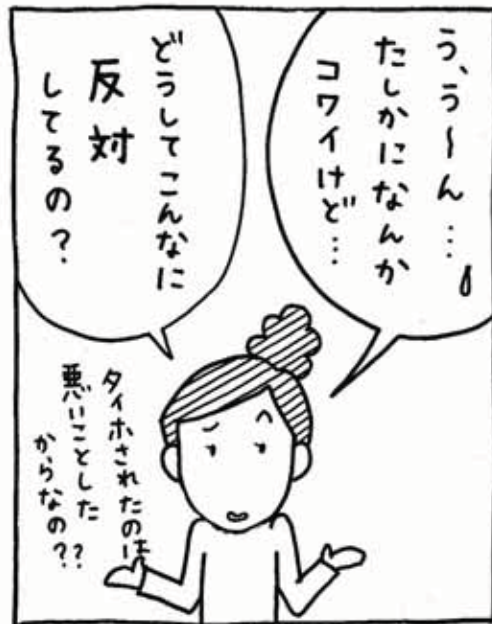 う、う〜ん…
たしかになんか
コワイけど…
どうしてこんなに
反対
してるの?
タイホされたのは
悪いことした
からなの??